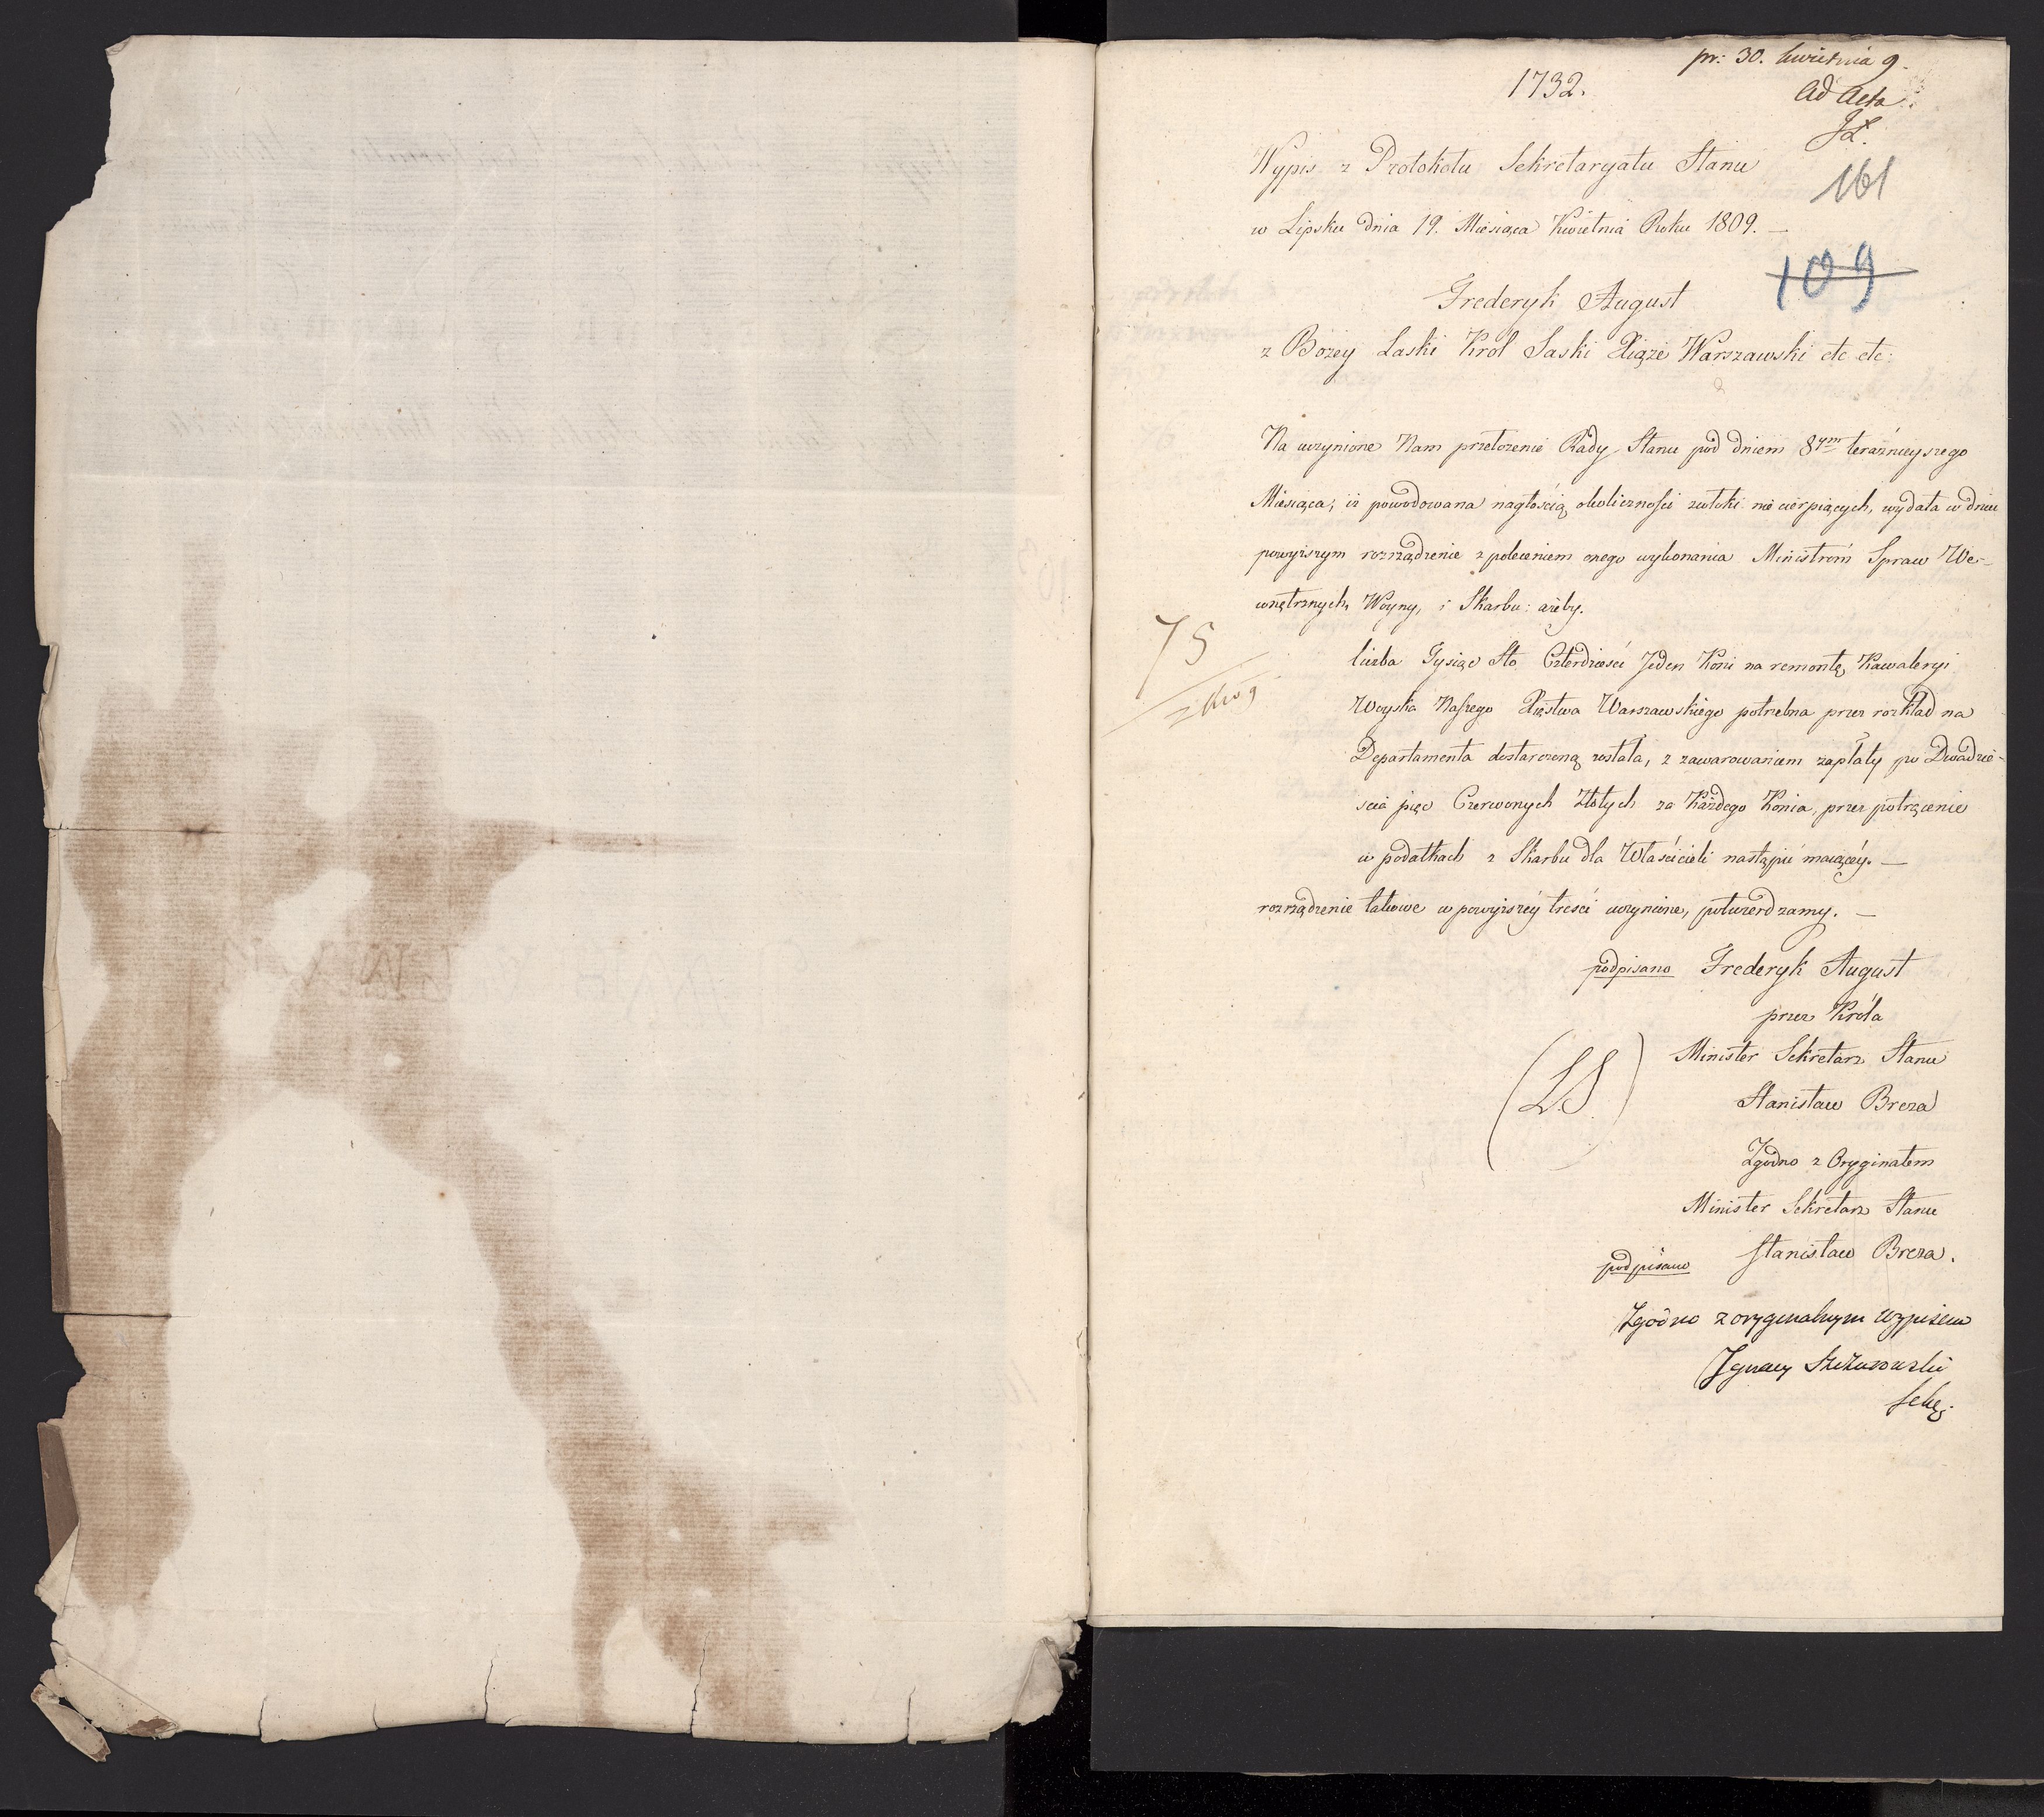 pr: 30. kwietnia 9.
1732.
Ad Acta
161
Wypis z Protokołu Sekretaryatu Stanu
w Lipsku dnia 19. Miesiąca Kwietnia Roku 1809. —
109
Frederyk August
z Bożey Łaski Krol Saski Xiąże Warszawski etc etc:
Na uczynione Nam przełożenie Rady Stanu pod dniem 8ym teraźnieyszego
Miesiąca, iż powodowana nagłością okolicznosci zwłoki nie cierpiących, wydała w dniu
powyższym rozrządzenie z poleceniem onego wykonania Ministróm Spraw We-
wnętrznych, Woyny, i Skarbu: ażeby.
75
liczba Tysiąc Sto Czterdzieści Jeden Koni na remontę Kawaleryi
Woyska Naszego Xięstwa Warszawskiego potrzebna przez rozkład na
Departamenta dostarczoną została, z zawarowaniem zapłaty po Dwadzie-
ścia pięc Czerwonych Złotych za Każdego Konia, przez potrącenie
w podatkach z Skarbu dla Właścicieli nastąpić maiącéy. —
rozrządzenie takowe w powyższéy treści uczynione, potwierdzamy. —
podpisano Frederyk August
przez Króla
Minister Sekretarz Stanu
(LS)
Stanisław Breza
Zgodno z Oryginałem
Minister Sekretarz Stanu
podpisano Stanisław Breza.
Zgodno z oryginalnym wypisem
Ignacy